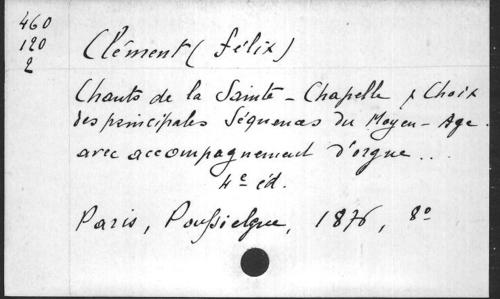 460
120
2
Clément (Félix)
Chants de la Sainte-Chapelle & Choix
des principales Séquences du Moyen-Age
avec accompagnement d'orgue...
4e éd.
Paris, Poussielgue, 1876, 8o